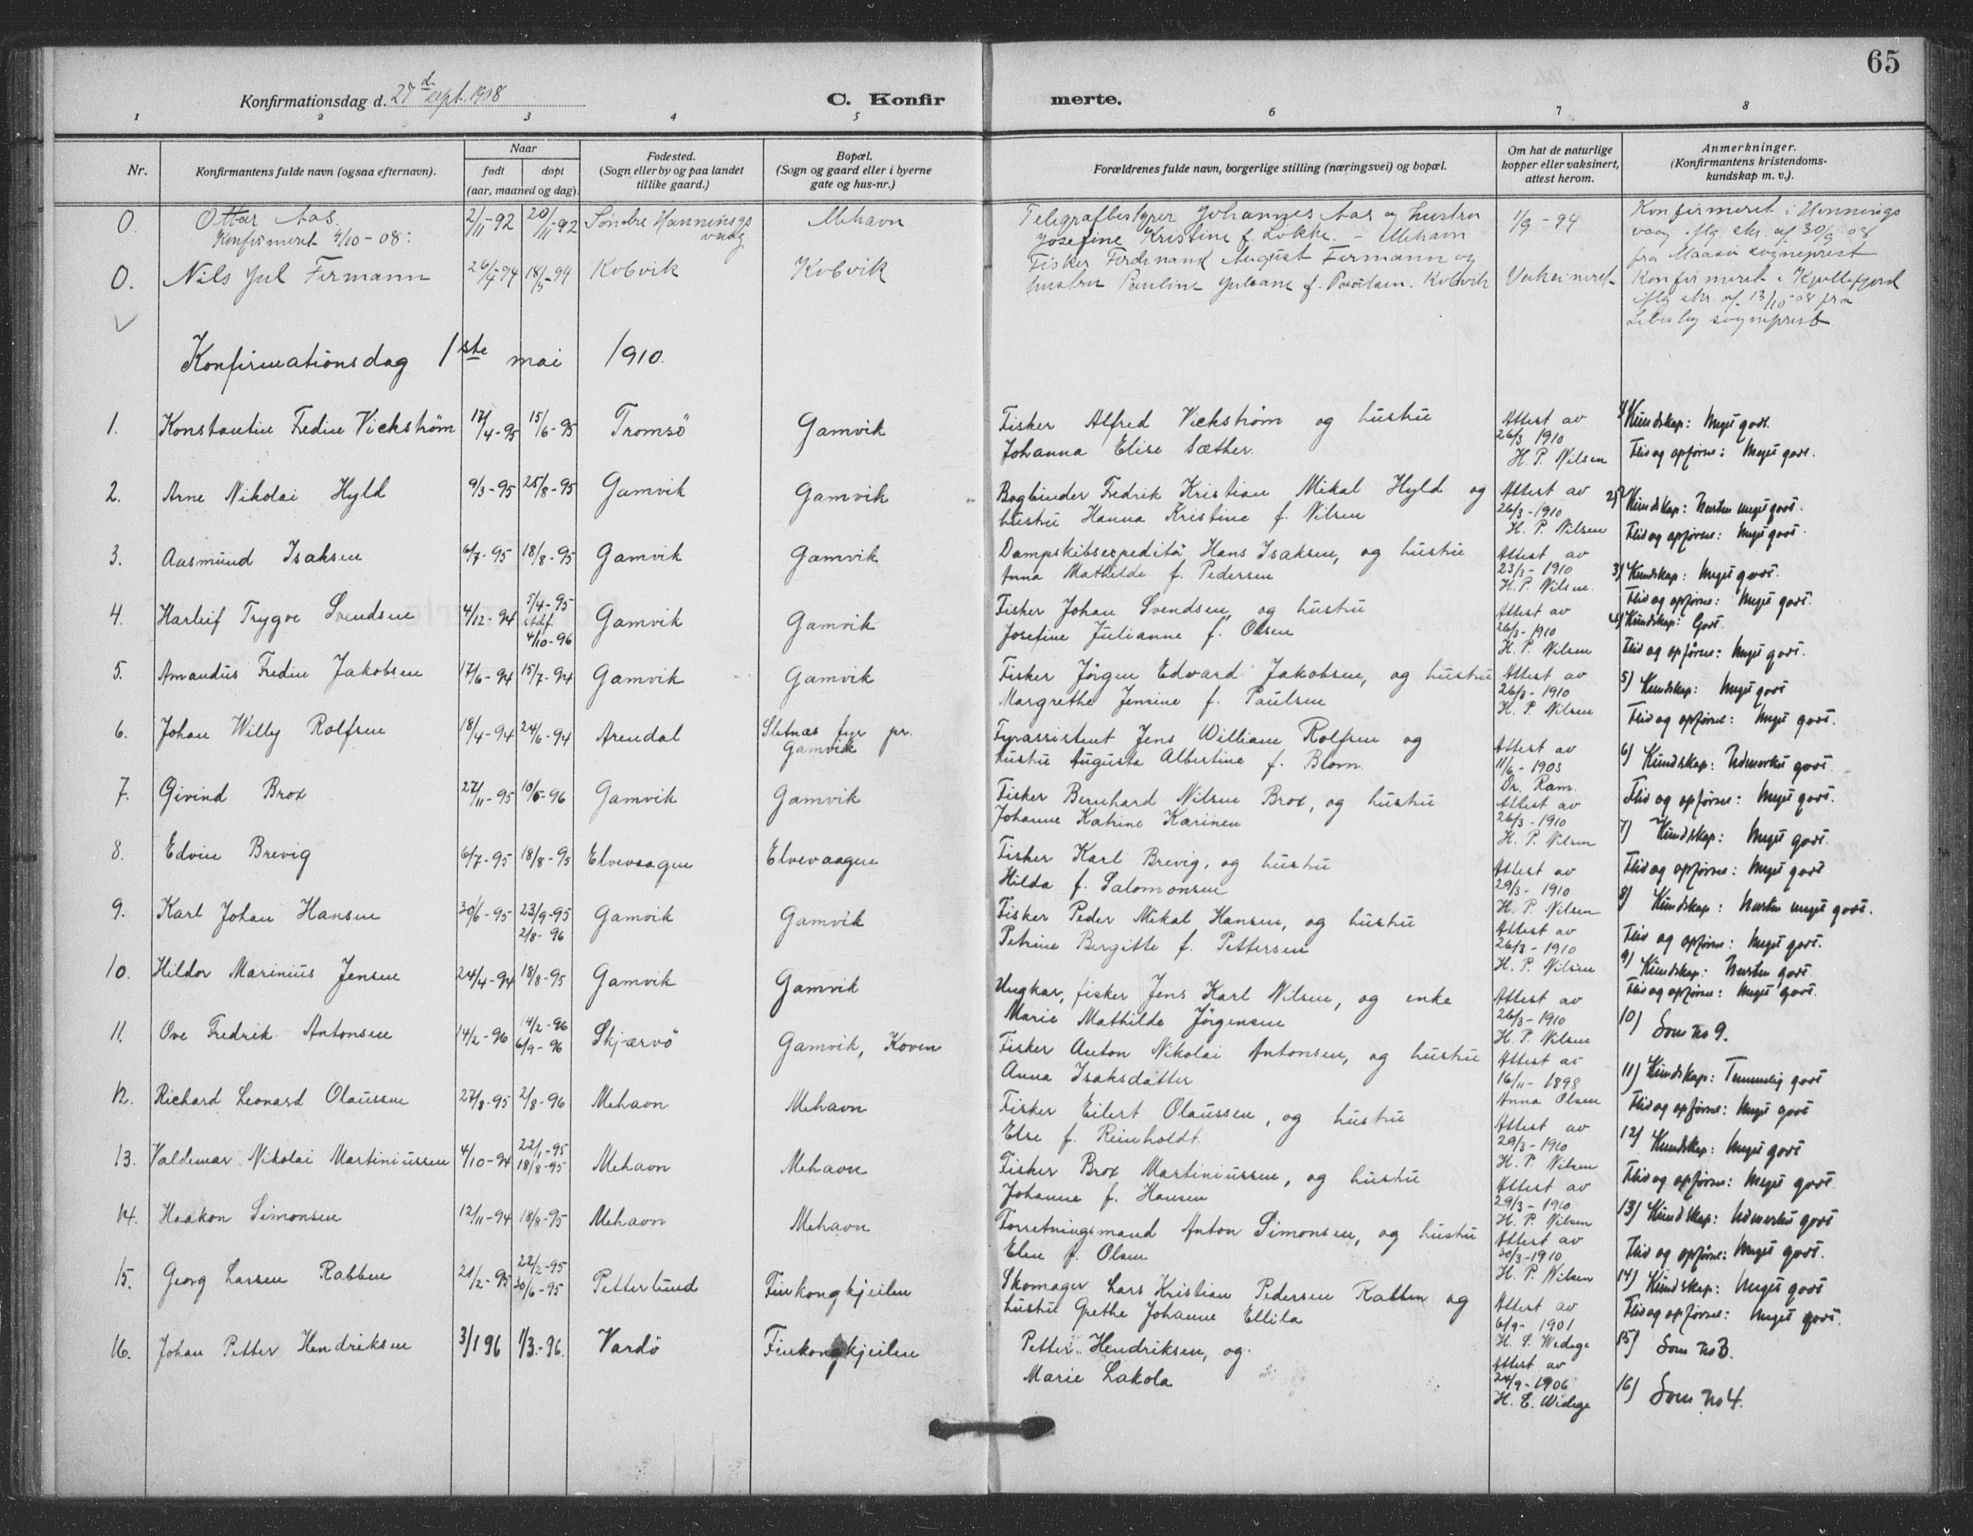 65
Konfirmationsdag d. 27d sept. 1908
C. Konfirmerte.
1 2 3 4 5 6 7 8
Nr. Konfirmantens fulde navn (ogsaa efternavn). Naar født døpt (aar, maaned og dag). Fødested. (Sogn eller by og paa landet tillike gaard.) Bopæl. (Sogn og gaard eller i byerne gate og hus-nr.) Forældrenes fulde navn, borgerlige stilling (næringsvei) og bopæl. Om hat de naturlige kopper eller vaksinert, attest herom. Anmerkninger. (Konfirmantens kristendoms-kundskap m. v.).
0. Ottar Aas. 2/11-92 20/11-92 Søndre Honningsvaag Mehavn Telegrafbestyrer Johannes Aas og hustru 1/9-94 Konfirmeret i Honnings
Konfirmeret 4/10-08: Josefine Kristine f. Løkke. - Mehavn vaag iflg. skr. af 30/9 08
fra Maasø sogneprest
0. Nils Jul Fermann 18/5-94 Kobvik Kobvik Fisker Ferdinand August Fermann og Vaksineret Konfirmeret i Kjøllefjord
hustru Pauline Juliane f. Kobvik iflg skr af 13/10-08 fra
Lebesby sogneprest
Konfirmationsdag 1ste mai 1910.
1. Konstantin Fedin Vickstrøm 17/4-95 15/6-95 Tromsö Gamvik Fisker Alfred Vickstrøm og hustru Attest av 1) Kundskap: Meget godt.
Johanna Elise Sæther. 26/3 1910 Flid og opførsel: Meget godt.
H. P. Nilsen
2. Arne Nikolai Hyld 9/3-95 25/8-95 Gamvik Gamvik Bogbinder Fredrik Kristian Mikal Hyld og Attest av 2) Kundskap: Næsten meget godt.
hustru Hanna Kristine f. Nilsen 26/3-1910 Flid og opførsel: Meget godt.
H. P. Nilsen
3. Aasmund Isaksen 6/7-95 18/8-95 Gamvik Gamvik Dampskibsexpeditör Hans Isaksen, og hustru Attest av 3) Kundskap: Meget godt.
Anna Mathilde f. Pedersen 23/3-1910 Flid og opførsel: Meget godt.
H. P. Nilsen.
4. Harleif Trygve Svendsen 4/12-94 5/4-95 stdf. 4/10-96 Gamvik Gamvik Fisker Johan Svendsen, og hustru Attest av 4) Kundskap: Godt.
Josefine Julianne f. Olsen 26/3-1910 Flid og opførsel: Meget godt.
H. P. Nilsen
5. Amandus Fredin Jakobsen 17/6-94 15/7-94 Gamvik Gamvik Fisker Jörgen Edvard Jakobsen, og hustru Attest av 5) Kundskap: Meget godt
Margrethe Jensine f. Paulsen 26/3-1910 Flid og opførsel: Meget godt.
H. P. Nilsen
6. Johan Willy Rolfsen 18/4-94 24/6-94 Arendal Sletnæs fyr pr. Gamvik Fyrassistent Jens William Rolfsen og Attest av 6) Kundskap: Udmerket godt
hustru Augusta Albertine f. Blom. 11/6-1903 Flid og opførsel: Meget godt.
Dr. Ram.
7. Öivind Brox 27/11-95 10/5-96 Gamvik Gamvik Fisker Bernhard Nilsen Brox, og hustru Attest av 7) Kundskap: Meget godt.
Johanne Katrine Karinen 26/3-1910 Flid og opførsel: Meget godt
H. P. Nilsen
8. Edvin Brevig 6/7-95 18/8-95 Elvevaagen Elvevaagen Fisker Karl Brevig, og hustru Attest av 8) Kundskap: Næsten meget godt.
Hilda f. Salomonsen 29/3-1910 Flid og opførsel: Meget godt.
H. P. Nilsen
9. Karl Johan Hansen 30/6-95 23/9-95 2/8-96 Gamvik Gamvik Fisker Peder Mikal Hansen, og hustru Attest av 9) Kundskap: Næsten godt.
Petrine Bergitte f. Pettersen 26/3-1910 Flid og opførsel: Meget godt.
H. P. Nilsen
10. Hildor Marinius Jensen 24/4-94 18/8-95 Gamvik Gamvik Ungkar, fisker Jens Karl Nilsen, og enke Attest av 10) Som no 9.
Marie Mathilde Jørgensen 26/3-1910
H. P. Nilsen
11. Ove Fredrik Antonsen 14/2-96 14/2-96 6/9-96 Skjærvö Gamvik, Koven Fisker Anton Nikolai Antonsen, og hustru Attest av 11) Kundskap: Temmelig godt
Anna Isaksdatter 16/11-1898 Flid og opførsel: Meget godt
Anna Olsen
12. Richard Leonard Olaussen 27/8-95 2/8-96 Mehavn Mehavn Fisker Eilert Olaussen, og hustru Attest av 12) Kundskap: Meget godt
Else f. Reinholdt. 29/3-1910 Flid og opførsel: Meget godt.
H. P. Nilsen
13. Valdemar Nikolai Martiniussen 4/10-94 22/1-95 18/8-95 Mehavn Mehavn Fisker Brox Martiniussen, og hustru Attest av 13) Kundskap: Udmerket godt
Johanne f. Hansen 29/3-1910 Flid og opførsel: Meget godt.
H. P. Nilsen
14. Haakon Simonsen 12/11-94 18/8-95 Mehavn Mehavn Forretningsmand Anton Simonsen, og hustru Attest av 14) Kundskap: Meget godt
Elen f. Olsen 30/3-1910 Flid og opførsel: Meget godt.
H. P. Nilsen
15. Georg Larsen Rabben 21/2-95 22/2-95 30/6-95 Petterlund Finkongkjeilen Skomager Lars Kristian Pedersen Rabben og Attest av 15) Som no 3.
hustru Grethe Johanne Ellila 6/9-1901
H. E. Wedege
16. Johan Petter Hendriksen 3/1 96 1/3-96. Vardö Finkongkjeilen Petter Hendriksen, og Attest av 16) Som no 4.
Marie Lakola 24/9-1906
H. E. Widege